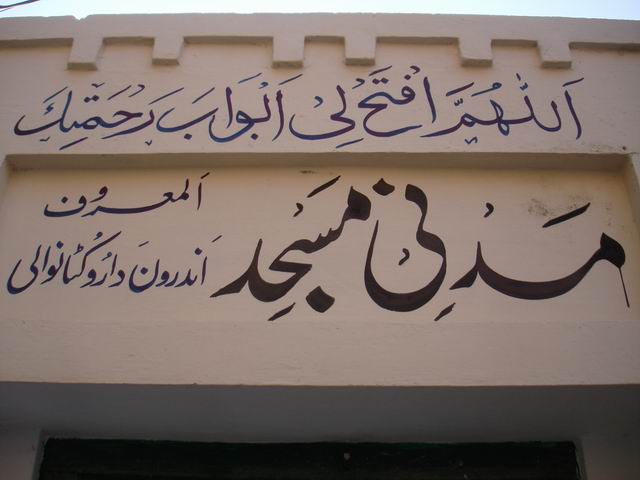 اَللّٰهُمَّ افْتَحْ لِیْ اَبْوَابَ رَحْمَتِكَ
مَدنِی مَسْجِد
اَلمعروف
اَندرونَ دارُو کُٹانوالی